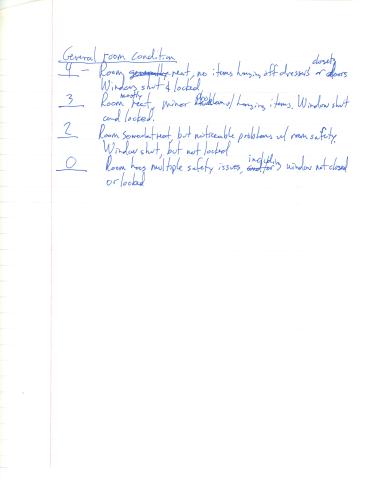 General room condition
closets
4 - Room generally neat, no items hanging off dressers or doors
Windows shut & locked.
mostly
3 Room neat, minor problems w/ hanging items. Window shut
and locked.
2 Room somewhat neat, but noticeable problems w/ room safety.
Window shut, but not locked
including
0 Room has multiple safety issues, and/or window not closed
or locked